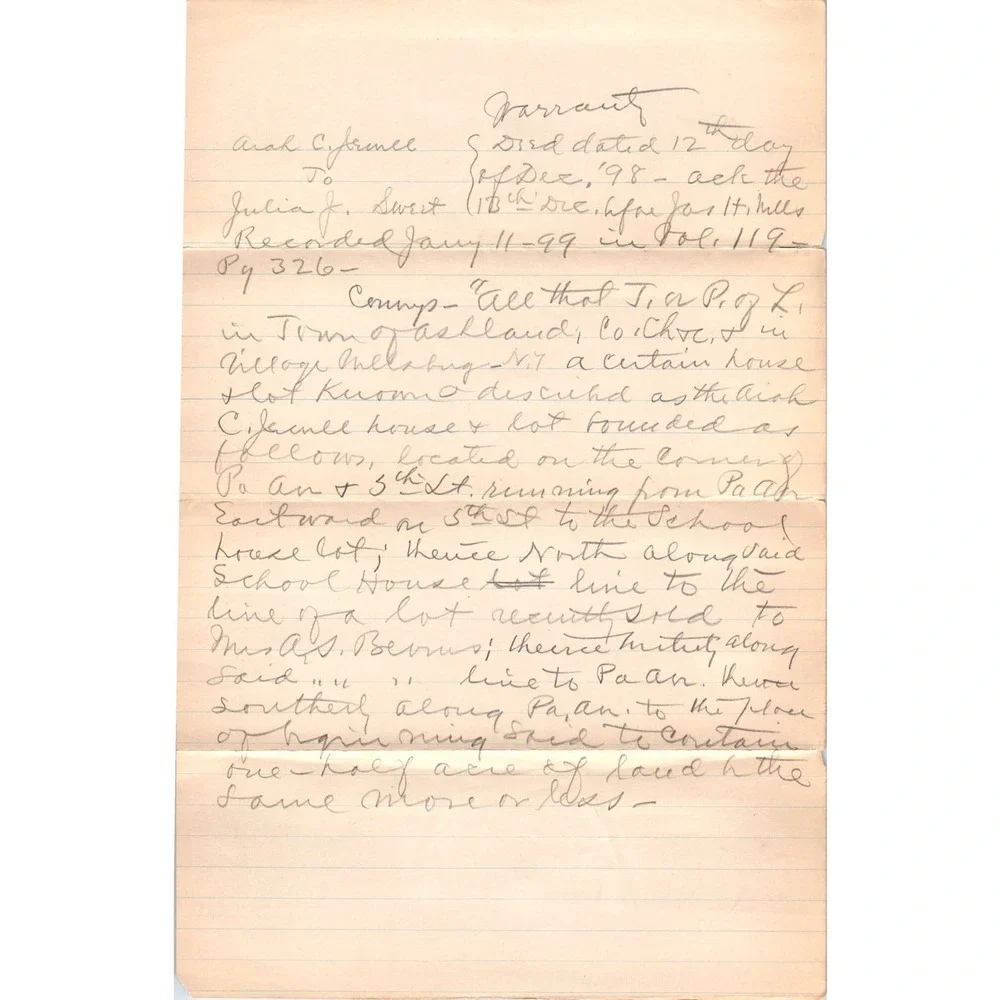 Warranty
Arah C. Jewell { Deed dated 12th day
To { of Dec. '98 - ack the
Julia J. Sweet { 13th Dec. bfore Jas H. Mills
Recorded Jany 11-99 in Vol. 119-
Pg 326-
Conveys - "All that T. or P. of L.
in Town of Ashland, Co. Ch&c, & in
Village Wellsburg - N.Y a certain house
& lot Known & described as the Arah
C. Jewell house & lot bounded as
follows, located on the corner of
Pa Av & 5th St. running from Pa Av
Eastward on 5th St to the School
house lot; thence North along said
School House lot line to the
line of a lot recently sold to
Mrs A. S. Bevins; thence westerly along
said " " " " " line to Pa Av. thence
southerly along Pa. Av. to the place
of beginning Said to contain
one-half acre of land b the
same more or less -